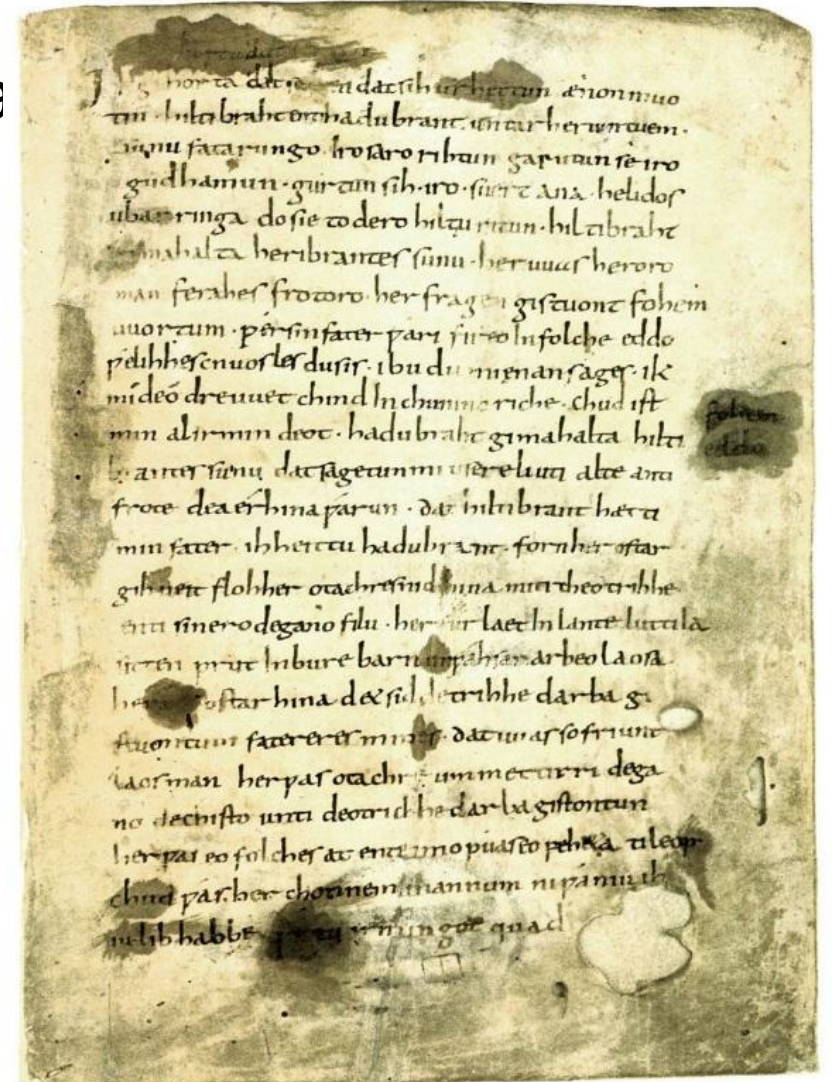 Ik gihorta đat seggen đat sih urhettun ænon muo
tin · hiltibraht enti hađubrant · untar heriun tuem ·
sunu fatarungo · iro saro rihtun garutun se iro
guđhamun · gurtun sih · iro · suert ana · helidos
ubar ringa do sie to dero hiltu ritun · hiltibraht
gimahalta heribrantes sunu · her uuas heroro
man ferahes frotoro · her fragen gistuont fohem
uuortum · ƿer sin fater ƿari fireo In folche eddo
ƿelihhes cnuosles du sis · ibu du mi enan sages · ik
mi deo dre uuet chind In chunincriche · chud ist
min al irmin deot · hadubraht gimahalta hilti
brantes sunu dat sagetun mi usere liuti alte anti
frote dea erhina ƿarun · dat hiltibrant hætti
min fater · ih heittu hadubrant · forn her ostar
gihueit floh her otachres nid hina miti theotrihhe
enti sinero degano filu · her furlaet In lante luttila
sitten prut In bure barn unƿahsan arbeo laosa
ostar hina det sid detrihhe darba gi
stuontum fatereres mines · dat uuas so friunt
laos man her ƿas otachre ummettirri dega
no dechisto unti deotrichhe darba gistontun
her ƿas eo folches at ente imo ƿuas eo feheta ti leop
chud ƿas her chonnem mannum ni ƿaniu ih
iu lib habbe irmingot quad